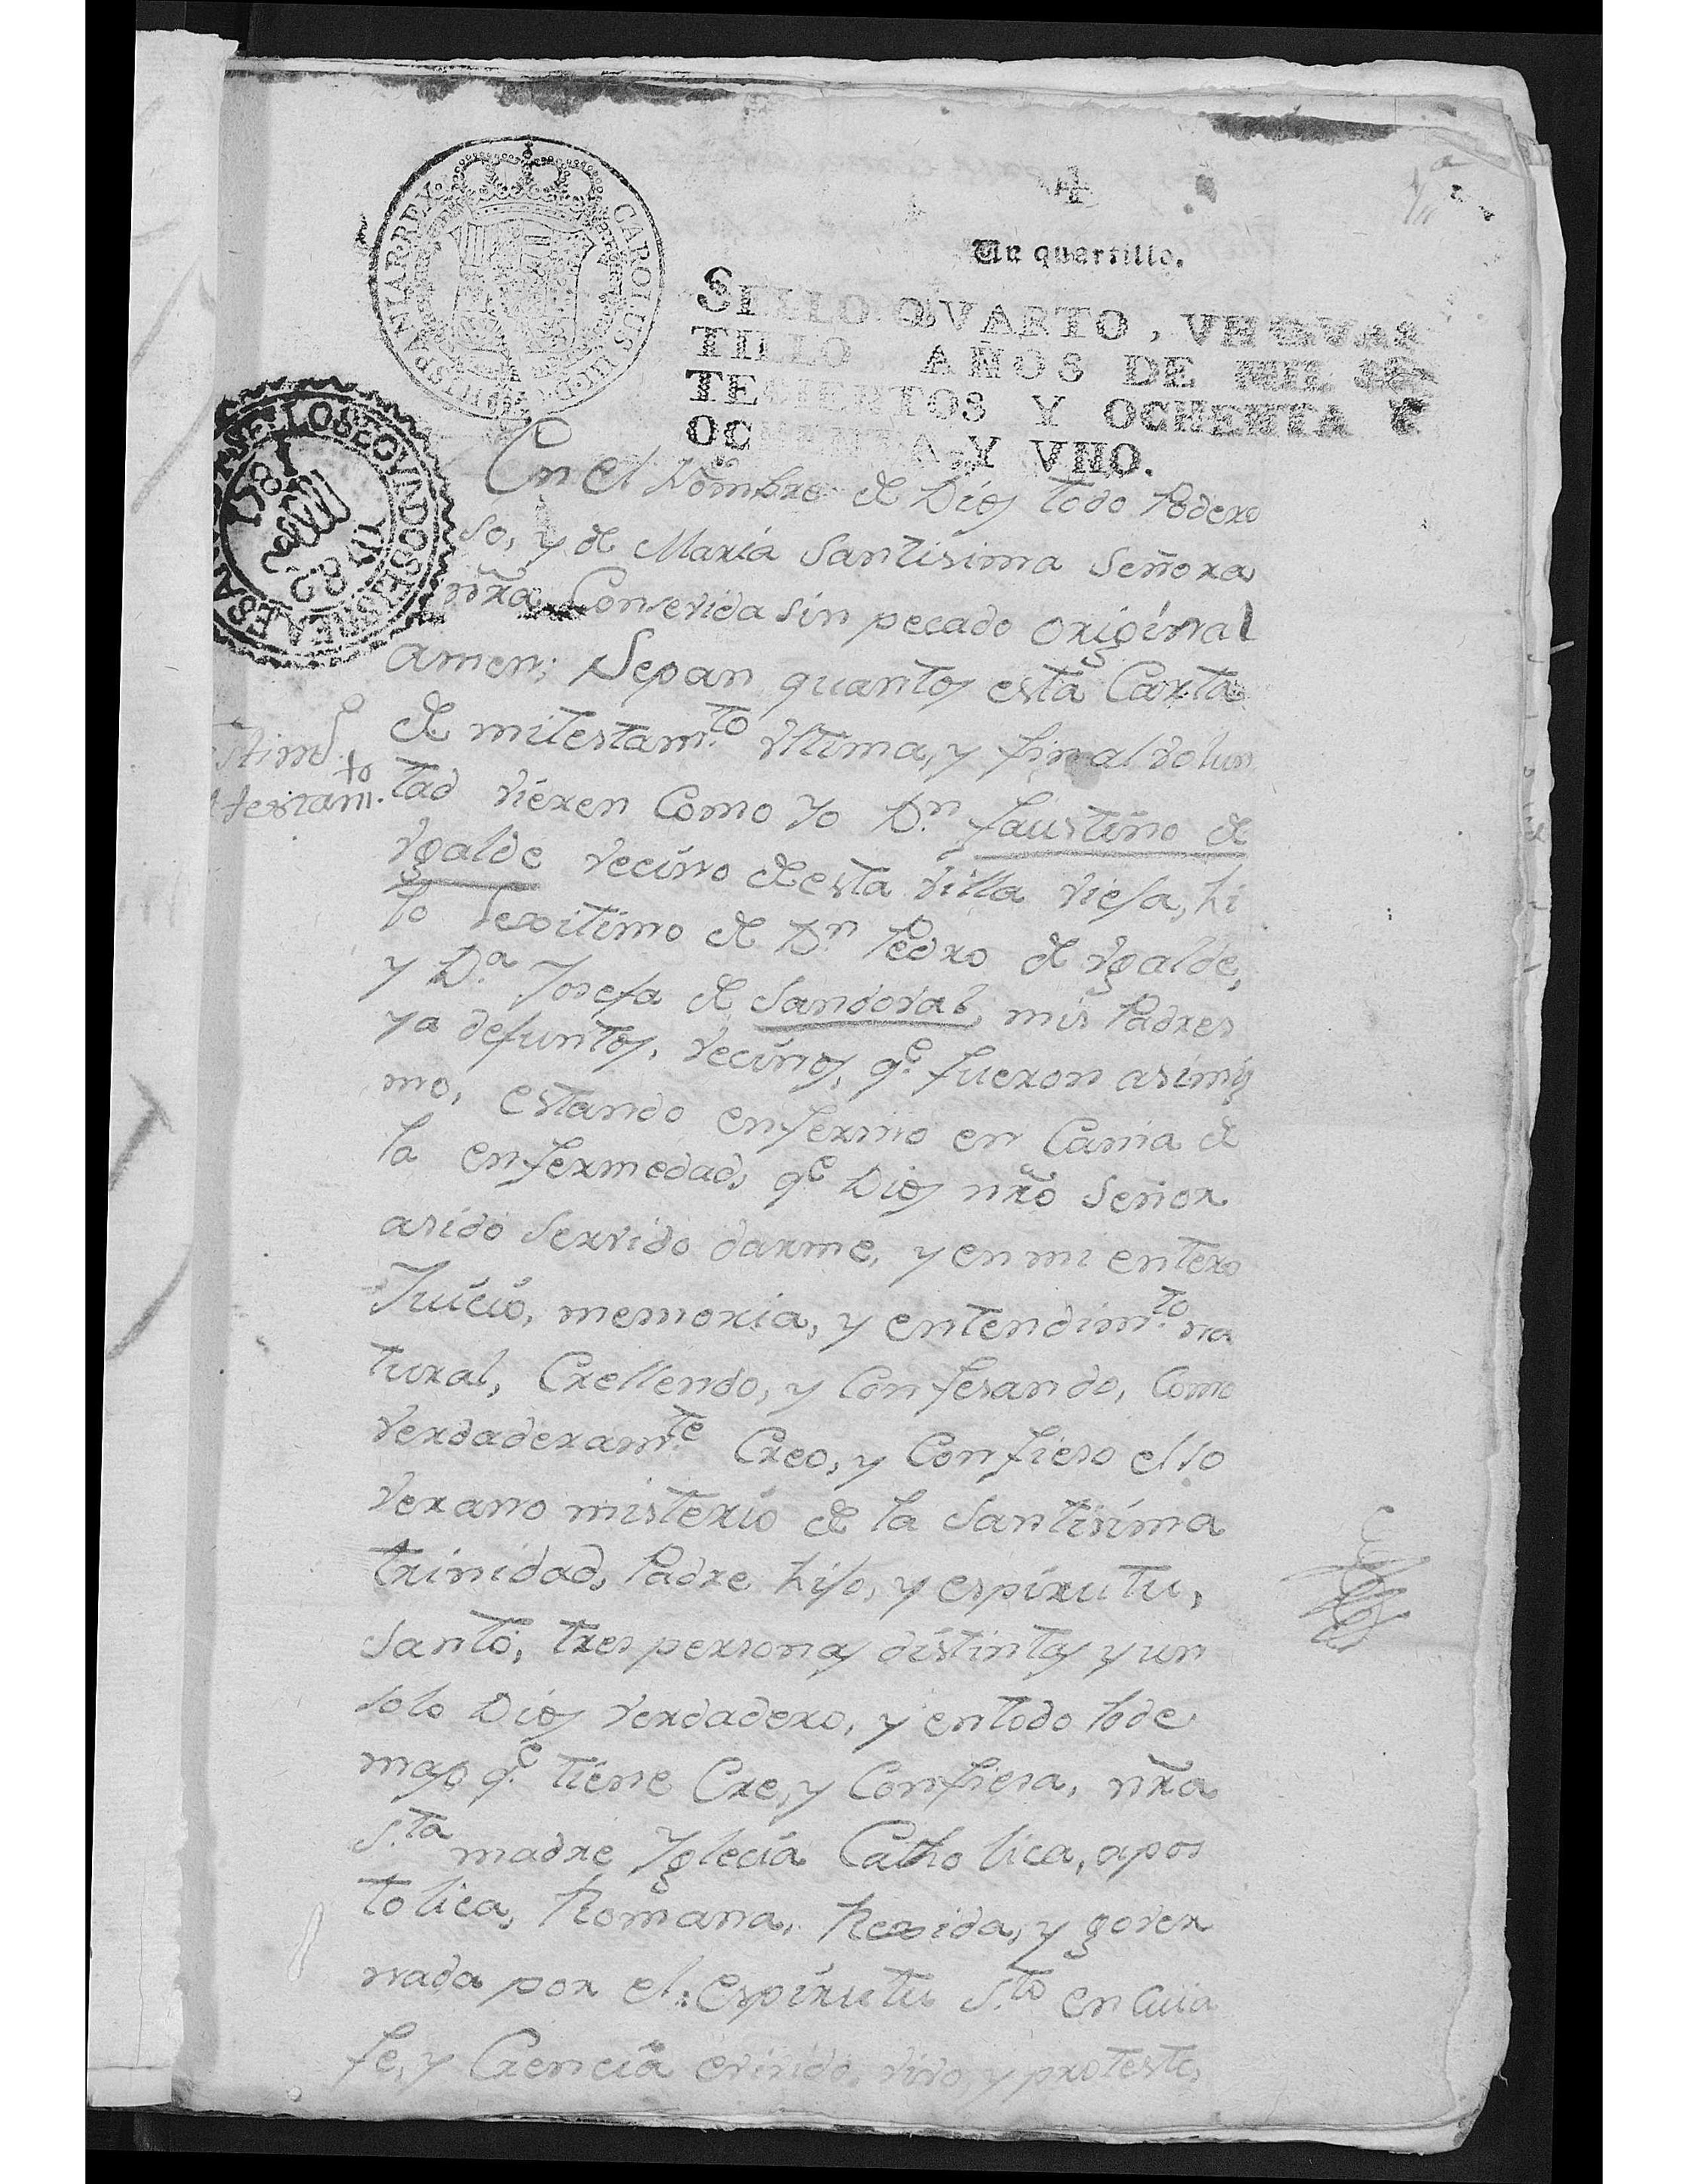 Un quartillo.
SELLO QVARTO, VN QVAR
TILLO AÑOS DE MIL SE
TECIENTOS Y OCHENTA Y
OCHENTA Y VNO.
CAROLUS III D HISPANIAR REX
1781 Y 1782
En el Nombre de Dios todo Podero
so, y de Maria Santisima Señora
nr̃a Consevida sin pecado original
amen; Sepan quantos esta Carta
de mi testam.to vltima, y final volun
testam.to
tad vieren Como Yo D.n faustino de
vgalde vecino de esta villa viefa, hi
fo Lexitimo de D.n Pedro de vgalde,
y D.a Josefa de Sandoval, mis Padres
ya defuntos, vecinos, q.e fueron asimis
mo, estando enfermo en Cama de
la enfermedad, q.e Dios nr̃o Señor
asido servido darme, y en mi entero
Juicio, memoria, y entendim.to na
tural, Crellendo, y Confesando, Como
verdaderam.te Creo, y Confieso el so
verano misterio de la Santisima
trinidad, Padre hifo, y espiritu,
Santo; tres personas distintas y un
solo Dios verdadero, y en todo lo de
mas q.e tiene Cre, y Confiesa, nr̃a
S.ta madre Yglecia Catholica, apos
tolica, Romana, Rexida, y gover
nada por el Espiritu S.to en Cuia
fe, y Crencia e vivido, vivo, y protesto,